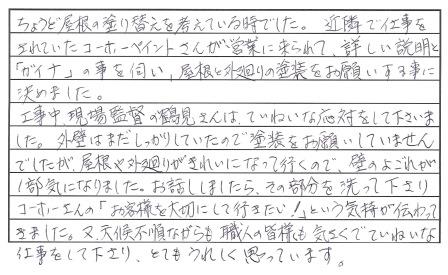 ちょうど屋根の塗り替えを考えている時でした。近隣で仕事を
されていたコーホーペイントさんが営業に来られて、詳しい説明と
「ガイナ」の事を伺い、屋根と外廻りの塗装をお願いする事に
決めました。
工事中、現場監督の鶴見さんは、ていねいな応対をして下さいま
した。外壁はまだしっかりしていたので塗装をお願いしていません
でしたが、屋根や外廻りがきれいになって行くので、壁のよごれが
1部気になりました。お話ししましたら、その部分を洗って下さり
コーホーさんの「お客様を大切にして行きたい!」という気持が伝わって
きました。又天候不順ながらも職人の皆様も気さくでていねいな
仕事をして下さり、とてもうれしく思っています。